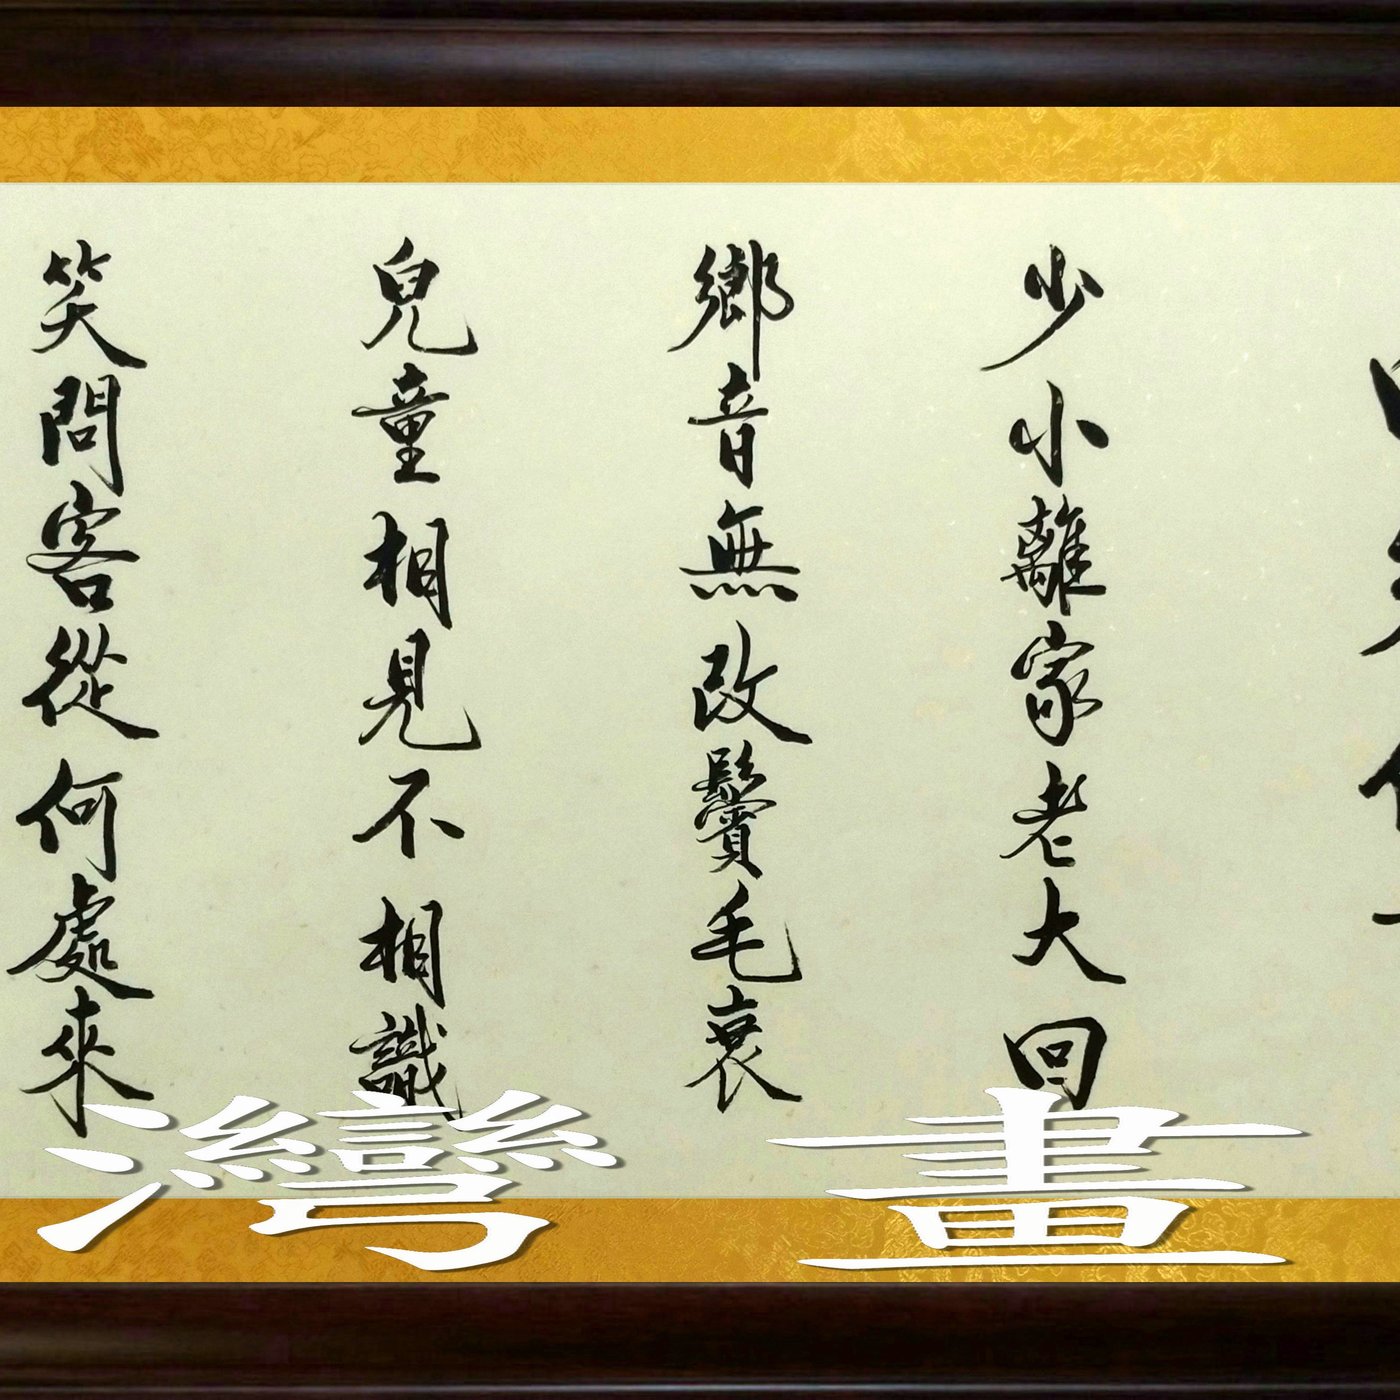 少小離家老大回
鄉音無改鬢毛衰
兒童相見不相識
笑問客從何處來
灣 畫